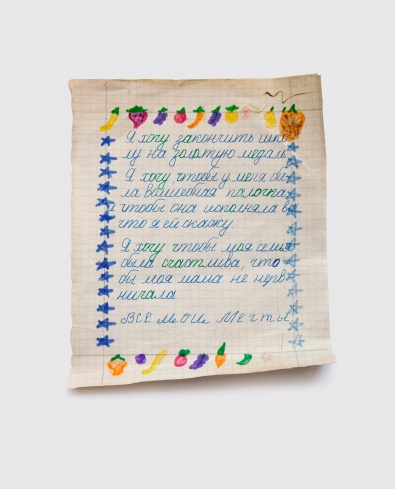 Я хочу закончить шко
лу на золотую медаль
Я хочу чтобы у меня бы
ла волшебная палочка
чтобы она исполняла вс
что я ей скажу.
Я хочу чтобы моя семья
была счастлива, что
бы моя мама не нерв
ничала
ВСЕ мОи Мечты